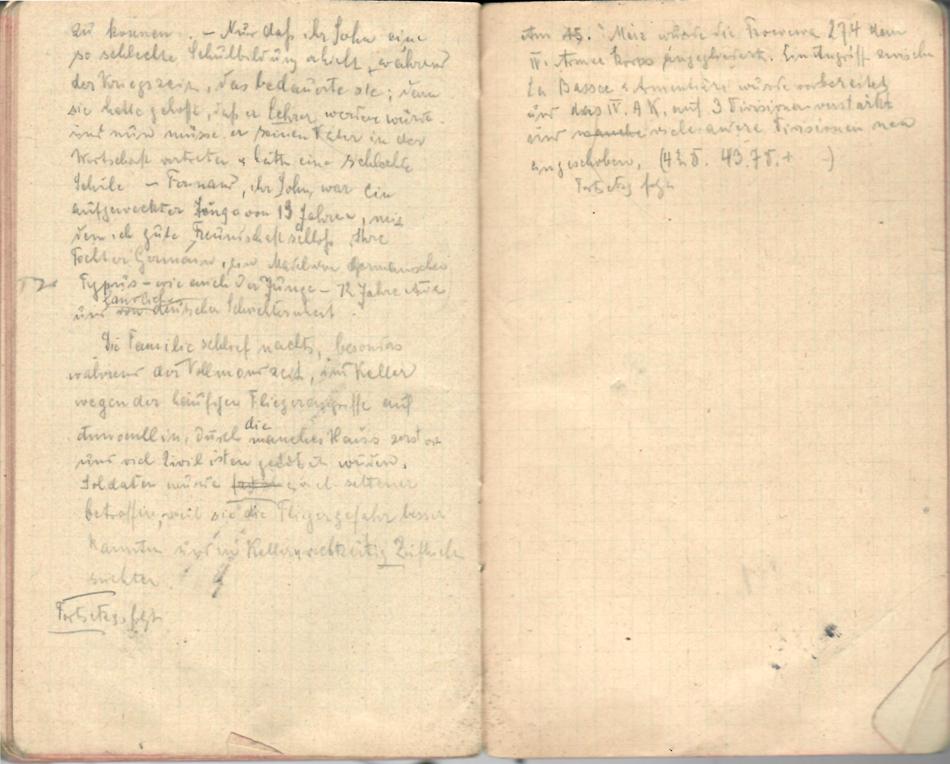 zu können. – Nur daß ihr Sohn eine
so schlechte Schulbildung erhielt, während
der Kriegszeit, das bedauerte sie; denn
sie hatte gehofft, daß er Lehrer werden würde
und nun müsse er seinen Vater in der
Wirtschaft vertreten & hätte eine schlechte
Schule – Fernand, ihr Sohn, war ein
aufgeweckter Junge von 13 Jahren, mit
dem ich gute Freundschaft schloß. Ihre
Tochter Germaine, ein Mädel von germanischen
Typus – wie auch der Junge – 12 Jahre
und von deutscher Schüchternheit.
Die Familie schlief nachts, besonders
während der Vollmondzeit, im Keller
wegen der häufigen Fliegerangriffe auf
durch die manches Haus zerstört
und viel Civilisten getötet wurden.
Soldaten wurden seltener
betroffen, weil sie die Fliegergefahr besser
kannten und in Kellern rechtzeitig Zuflucht
suchten.
Fortsetzg. folgt
Am 15. März wurde die 274 dem
IV. Armee Korps angegliedert. Ein Angriff zwischen
La Bassee & Armentiers wurde vorbereitet
und das IV. A.K. auf 3 Divisionen verstärkt
und viele andere Divisionen neu
angeschoben, (42 D. 43. D. + )
Fortsetzg folgt